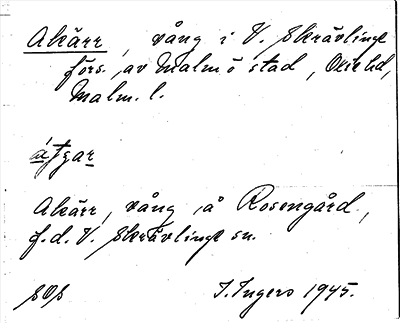 Akärr, vång i V. Skrävlinge
förs. av Malmö stad, Oxie hd,
Malm. l.
Akärr, vång å Rosengård,
f.d. V. Skrävlinge sn.
I. Ingers 1945.